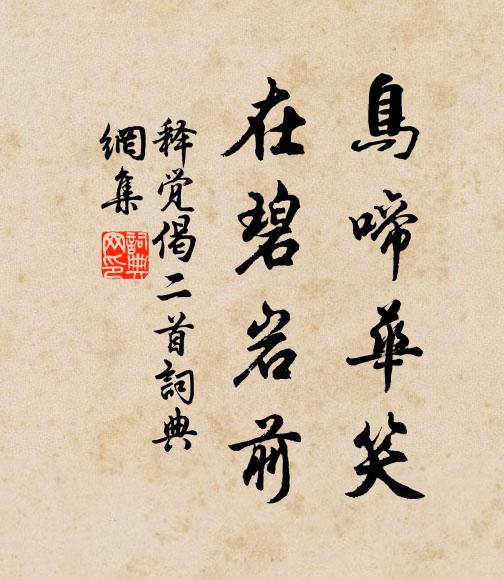 鳥啼華笑
在碧岩前
释觉偈二首詞典
網集
詞典
网印